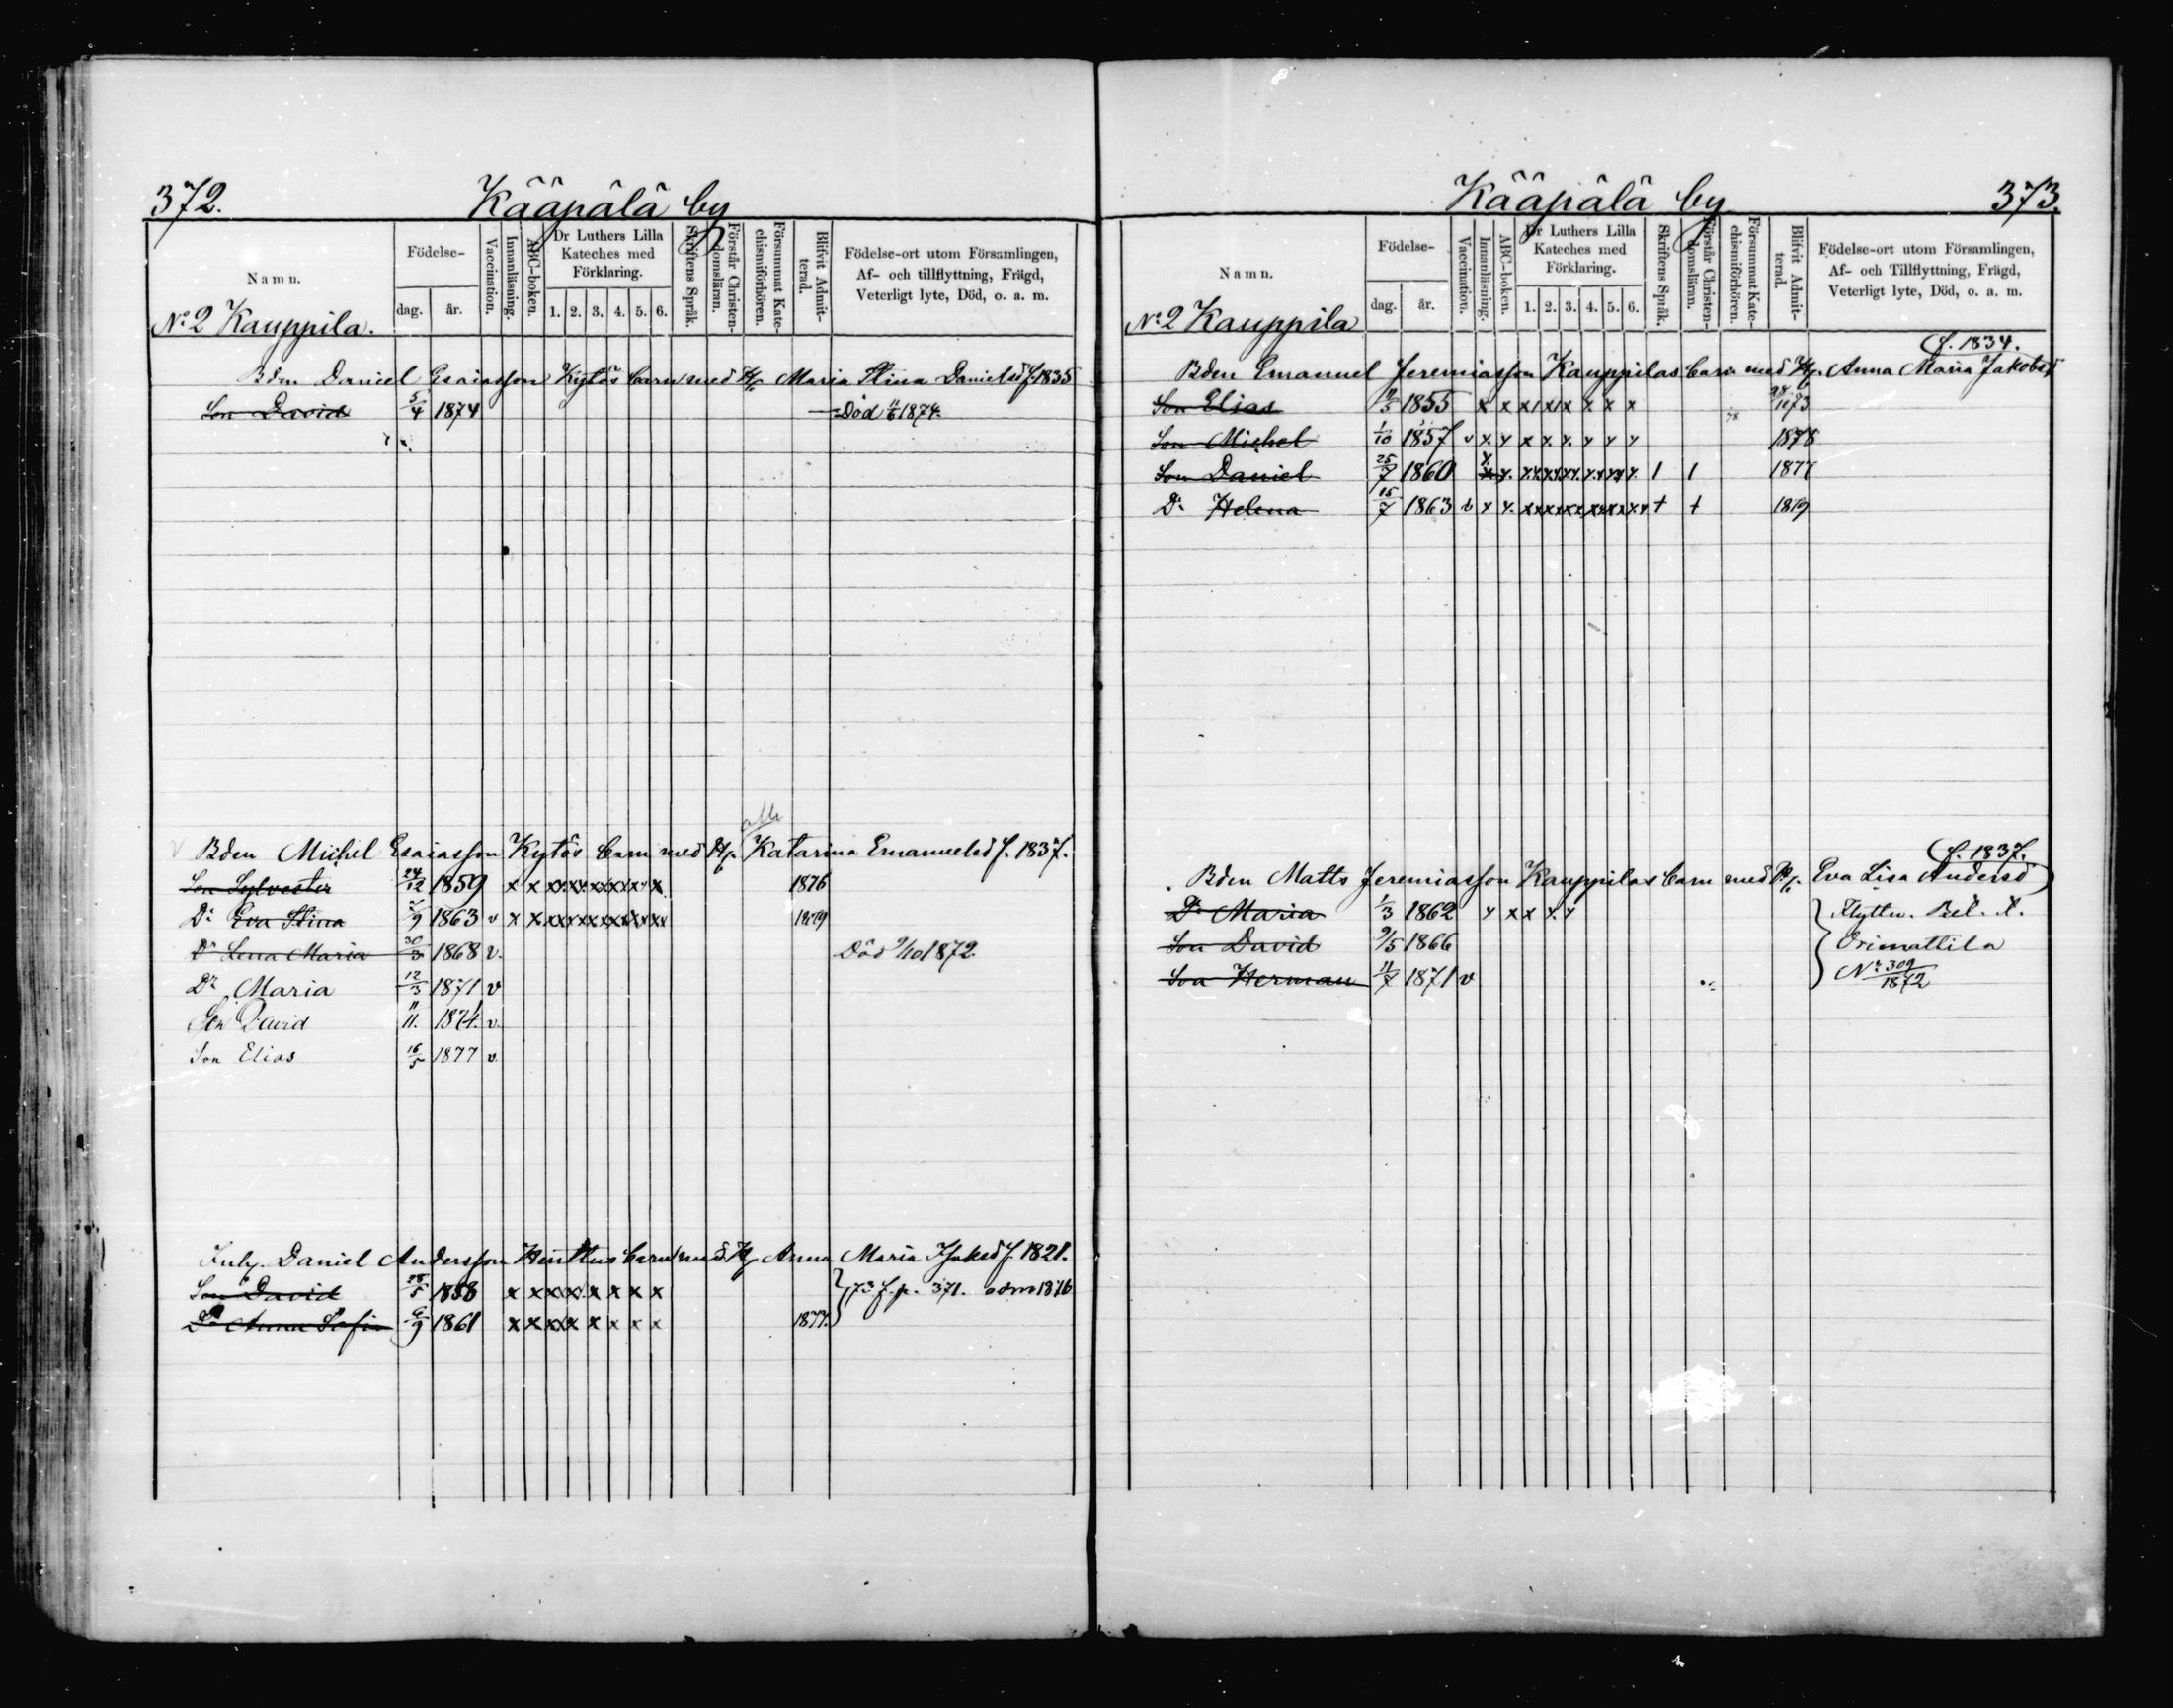 372.
Kääpälä by
Namn.
Födelse-
dag.
år.
Vaccination.
Innanläsning.
ABC-boken.
Dr Luthers Lilla Kateches med Förklaring.
1. 2. 3. 4. 5. 6.
Skriftens Språk.
Förstår Christendomsläran.
Försummat Katechismiförhören.
Blifvit Admitterad.
Födelse-ort utom Församlingen, Af- och tillflyttning, Frägd, Veterligt lyte, Död, o. a. m.
No 2 Kauppila.
Bden Daniel Esaiasson Kytös barn med H. Maria Stina Danielsd f. 1835
Son David 5/4 1874 Död 11/6 1874.
Bden Michel Esaiasson Kytös barn med H. Katarina Emanuelsd f. 1837.
Son Sylvester 24/12 1859 x x x x x x x x x 1876
Dr Eva Stina /9 1863 v x x x x x x x x 1879
Dr Lena Maria 30/3 1868 v. Död 9/10 1872.
Dr Maria 12/3 1871 v
Son David 11/11. 1874. v.
Son Elias 16/5 1877 v.
Daniel Andersson Huttus barn med H Anna Maria f. 1821.
Son David 28/5 1858 x x x x x x x x 73 f. p. 371. adm 1876
Dr Anna Sofia 6/9 1861 x x x x x x x x 1877.
Kääpälä by
373.
Namn.
Födelse-
dag.
år.
Vaccination.
Innanläsning.
ABC-boken.
Dr Luthers Lilla Kateches med Förklaring.
1. 2. 3. 4. 5. 6.
Skriftens Språk.
Förstår Christendomsläran.
Försummat Katechismiförhören.
Blifvit Admitterad.
Födelse-ort utom Församlingen, Af- och Tillflyttning, Frägd, Veterligt lyte, Död, o. a. m.
No 2 Kauppila
f. 1834.
Bden Emanuel Jeremiasson Kauppilas barn med H. Anna Maria Jakobsd
Son Elias 11/5 1855 x x x x x x x x 73
Son Michel 1/10 1857 v x x x x x x x x 1878
Son Daniel 25/7 1860 x x x x x x x x 1 1 1877
Dr Helena 15/7 1863 v x x x x x x x x + + 1879
f. 1837.
Bden Matts Jeremiasson Kauppilas barn med H. Eva Lisa Andersd
Dr Maria 1/3 1862 x x x x x Flyttn. Bet. t.
Son David 9/5 1866 Orimattila
Son Herman 11/7 1871 v No 309/1872